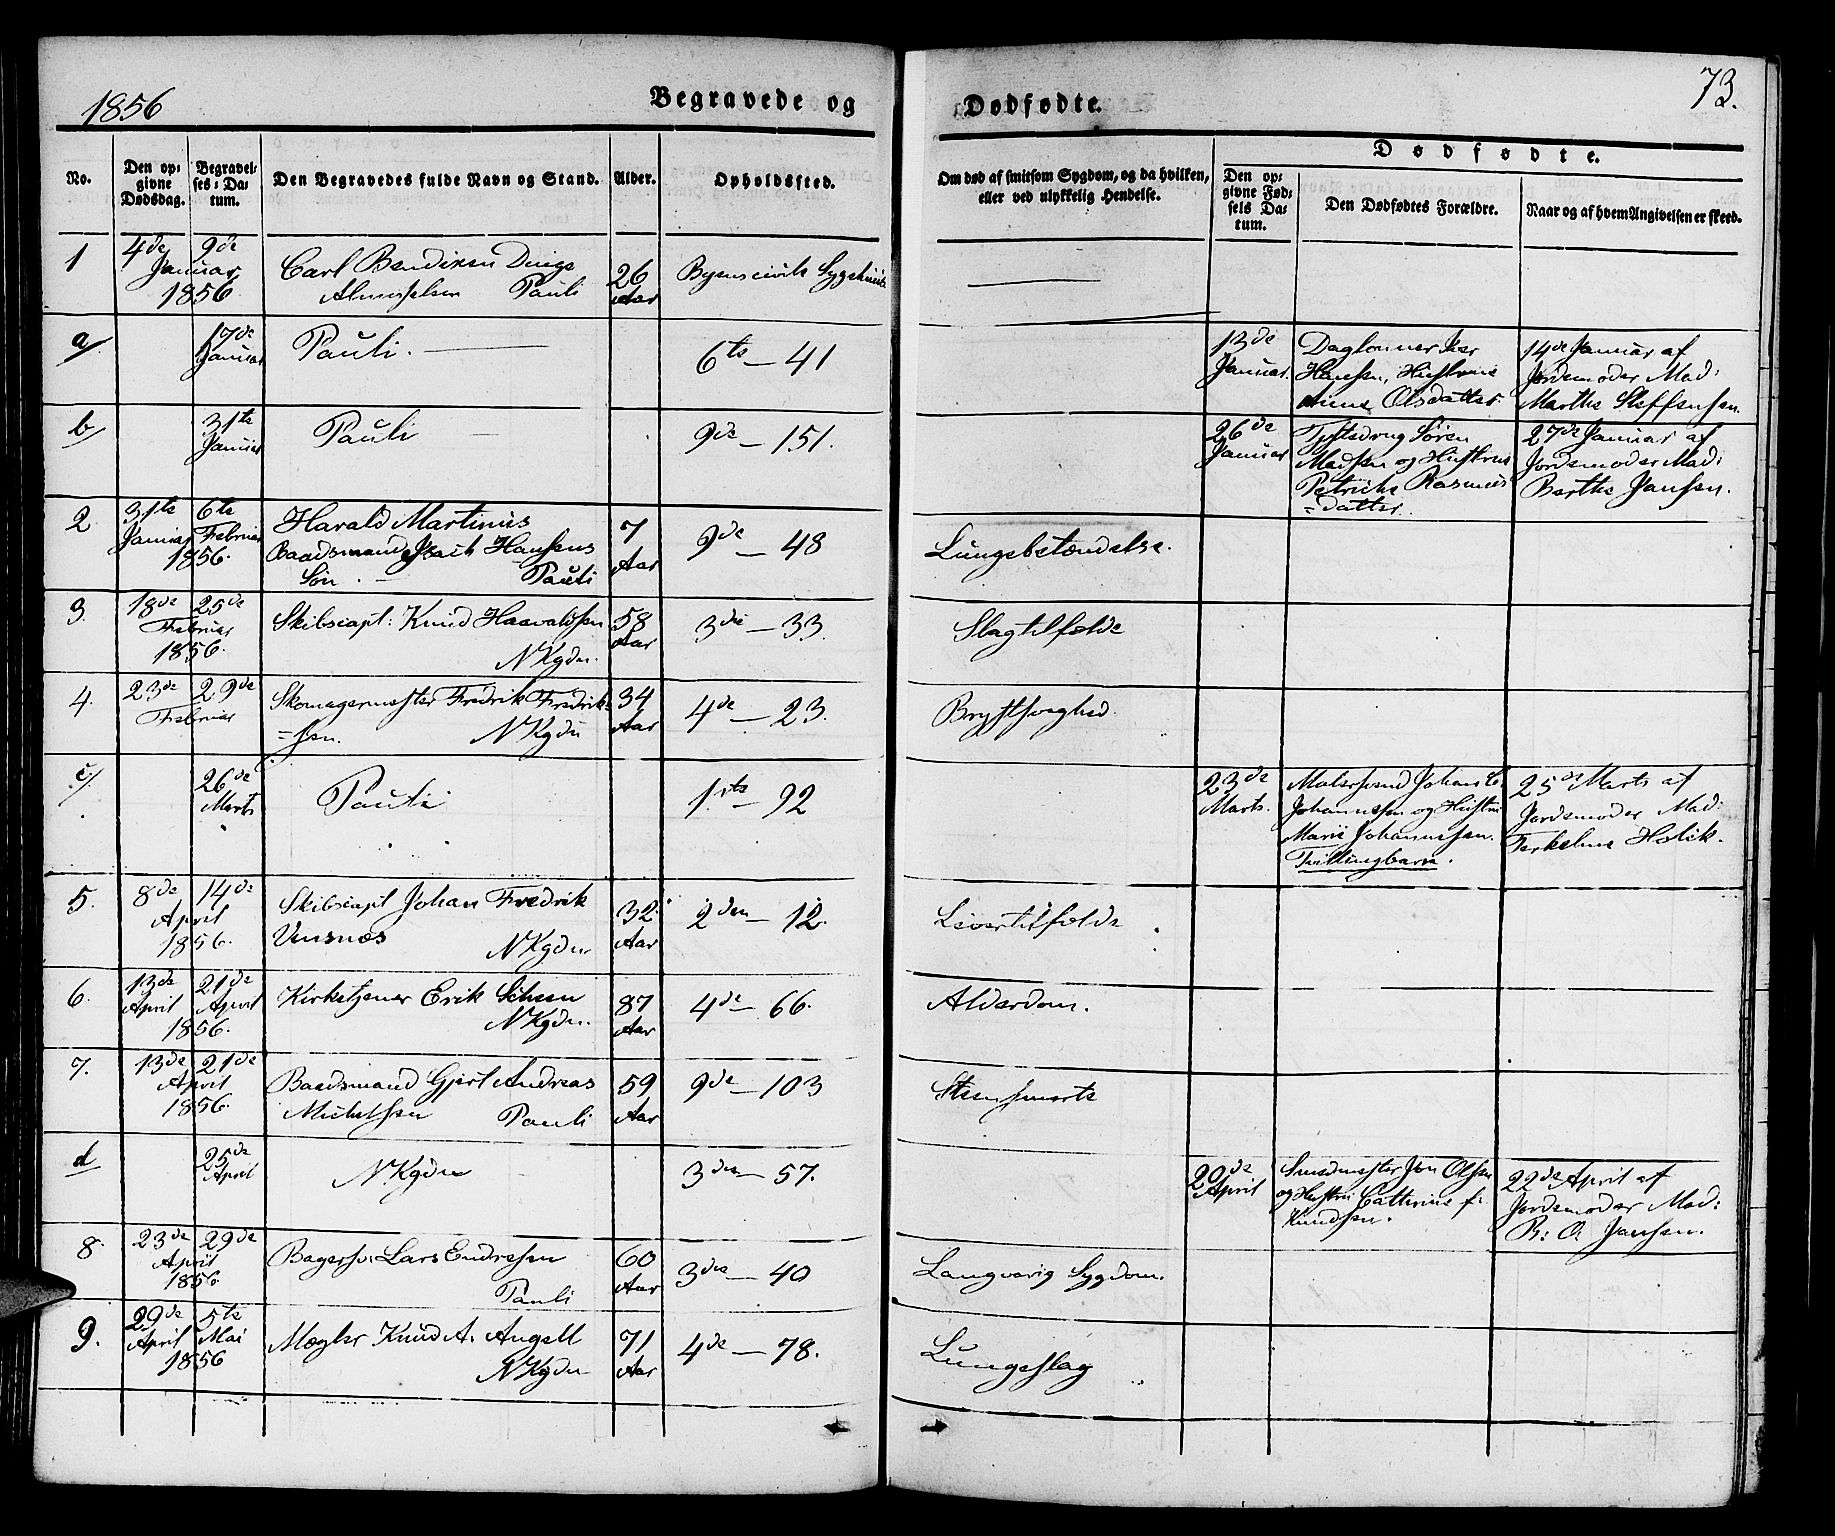 1856
Begravede og
Dødfødte.
73.
No.
Den op=
givne
Dødsdag.
Begravel=
ses= Da=
tum.
Den Begravedes fulde Navn og Stand.
Alder.
Opholdssted.
Om død af smitsom Sygdom, og da hvilken,
eller ved ulykkelig Hendelse.
Dødfødte.
Den op=
givne Fød=
sels Da=
tum.
Den Dødfødtes Forældre.
Naar og af hvem Angivelsen er skeed.
1
4de
9de
Januar
1856
Carl Bendixen
Pauli
26
Aar
Byens civile
a/
17de
Januar
Pauli.
6te — 41
13de
Januar.
Daglønner
Hansen, Hustrue
Olsdatter.
14de Januar af
Jordemoder Mad:
Marthe Steffensen.
b/
31te
Januar
Pauli
9de — 151.
26de
Januar
Søren
Madsen og Hustrue
Rasmus
=datter.
27de Januar af
Jordemoder Mad:
Berthe Jansen.
2
31te
Januar
6te
Februar
1856.
Harald Martinus
Baadsmand Isach Hansens
Søn. —
Pauli
7
Aar
9de — 48
Lungebetændelse.
3.
18de
25de
Februar
1856.
Skibscapt: Knud Haavaldsen
NKgdn.
58
Aar
3die — 33
Slagtilfælde
4.
23de
29de
Februar
Skomagermester Fredrik Fredrik=
=sen.
NKgdn
34
Aar
4de — 23.
Brystsvaghed.
c/
26de
Marts
Pauli
1ste — 92
23de
Marts.
Malersvend Johan C.
Johannessen og Hustru
Marie Johannessen.
Tvillingbarn.
25de Marts af
Jordemoder Mad:
5.
8de
14de
April
1856.
Skibscapt Johan Fredrik
NKgdn.
32
Aar
2den — 12.
6.
13de
April
21de
April
1856.
Kirketjener Erik
NKgdn.
87
Aar
4de — 66.
Alderdom.
7.
13de
21de
April
1856.
Baadsmand Gjert Andreas
Michelsen
Pauli
59
Aar
9de — 103
Steensmerte
d
25de
April
NKgdn
3die — 57.
20de
April
Smedmester Jon Olsen
og Hustru Cathrine f:
Knudsen.
22de April af
Jordemoder Mad:
B: O. Jansen.
8.
23de
29de
April
1856.
Bagersv: Lars Endresen
Pauli
60
Aar
3die — 40
Langvarig Sygdom.
9.
29de
April
5te
Mai
1856
Mægler Knud A. Angell
NKgdn
71
Aar
4de — 78.
Lungeslag